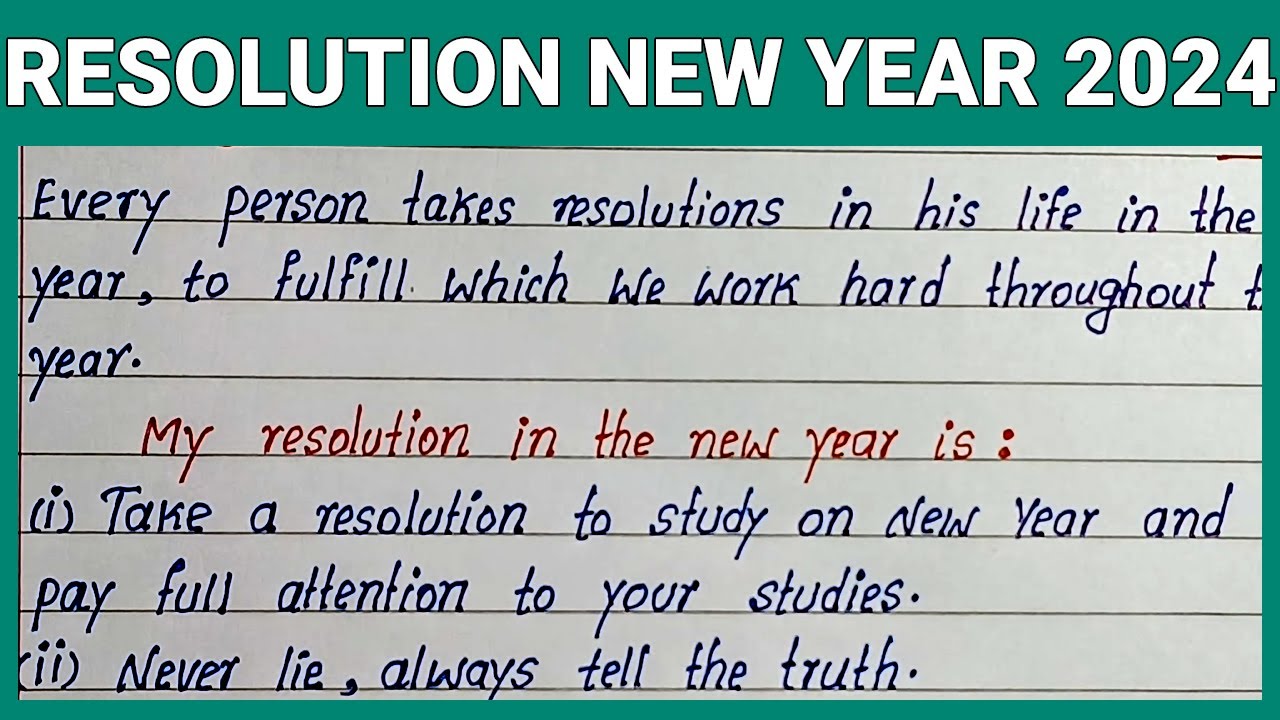 RESOLUTION NEW YEAR 2024
Every person takes resolutions in his life in the
year, to fulfill which we work hard throughout
year.
My resolution in the new year is :
(i) Take a resolution to study on New Year and
pay full attention to your studies.
(ii) Never lie, always tell the truth.